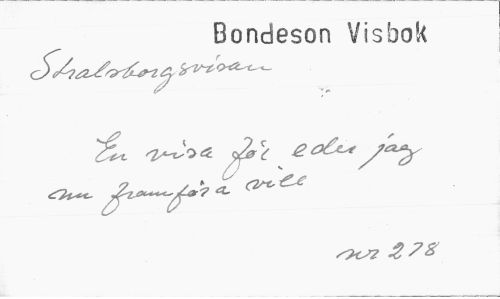 Bondeson Visbok
Stralsborgsvisan
En visa för eder jag
nu framföra vill
nr 278